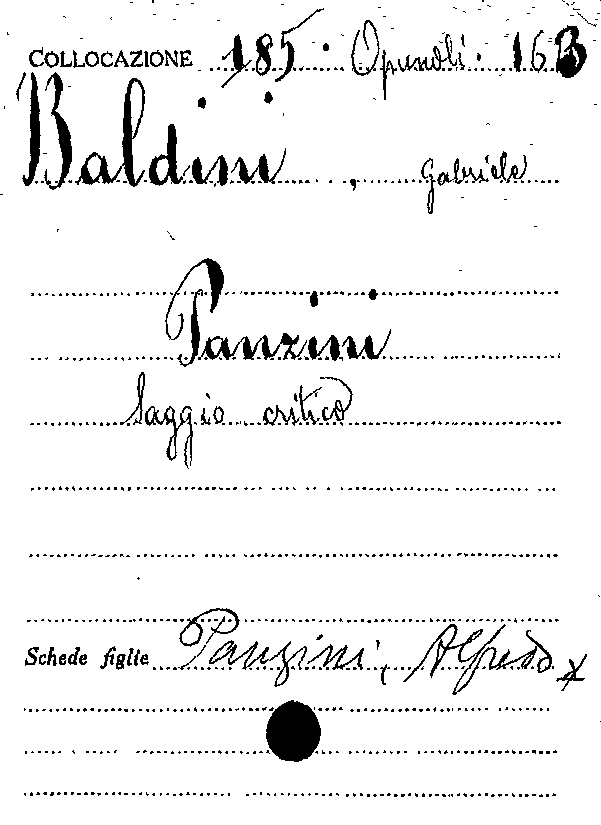 COLLOCAZIONE 185. Opuscoli. 16B
Baldini, Gabriele
Panzini
Saggio critico
Schede figlie Panzini, Alfredo *